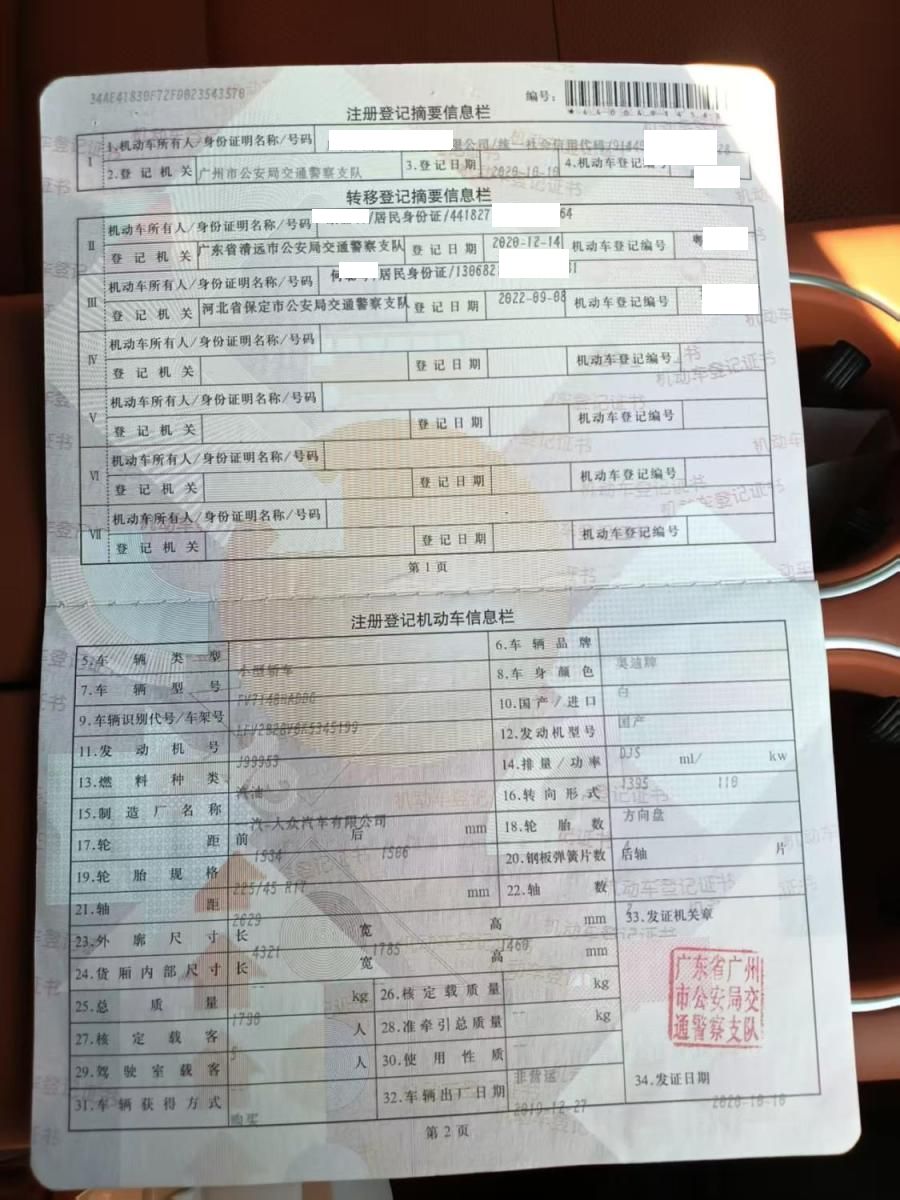 34AE41830F72FD023543570
编号：
注册登记摘要信息栏
Ⅰ 1.机动车所有人/身份证明名称/号码 限公司/统一社会信用代码/9144
2.登记机关 广州市公安局交通警察支队 3.登记日期 4.机动车登记编号
转移登记摘要信息栏
Ⅱ 机动车所有人/身份证明名称/号码 /居民身份证/441827 64
登记机关 广东省清远市公安局交通警察支队 登记日期 2020-12-14 机动车登记编号 粤
Ⅲ 机动车所有人/身份证明名称/号码 何 /居民身份证/130682 31
登记机关 河北省保定市公安局交通警察支队 登记日期 2022-09-08 机动车登记编号
Ⅳ 机动车所有人/身份证明名称/号码
登记机关 登记日期 机动车登记编号
Ⅴ 机动车所有人/身份证明名称/号码
登记机关 登记日期 机动车登记编号
Ⅵ 机动车所有人/身份证明名称/号码
登记机关 登记日期 机动车登记编号
Ⅶ 机动车所有人/身份证明名称/号码
登记机关 登记日期 机动车登记编号
第1页
注册登记机动车信息栏
5.车辆类型 小型轿车 6.车辆品牌 奥迪牌
7.车辆型号 8.车身颜色 白
9.车辆识别代号/车架号 10.国产/进口 国产
11.发动机号 J99953 12.发动机型号 DJS
13.燃料种类 汽油 14.排量/功率 1395 ml/ 110 kw
15.制造厂名称 一汽-大众汽车有限公司 16.转向形式 方向盘
17.轮距 前 1534 后 1506 mm 18.轮胎数 4
19.轮胎规格 225/45 R17 20.钢板弹簧片数 后轴 片
21.轴距 2629 mm 22.轴数 2
23.外廓尺寸 长 4321 宽 1785 高 1460 mm 33.发证机关章
24.货厢内部尺寸 长 宽 高 mm
广东省广州
市公安局交
通警察支队
25.总质量 1790 kg 26.核定载质量 -- kg
27.核定载客 5 人 28.准牵引总质量 -- kg
29.驾驶室载客 -- 人 30.使用性质 非营运
31.车辆获得方式 购买 32.车辆出厂日期 2019-12-27 34.发证日期 2020-10-10
第2页